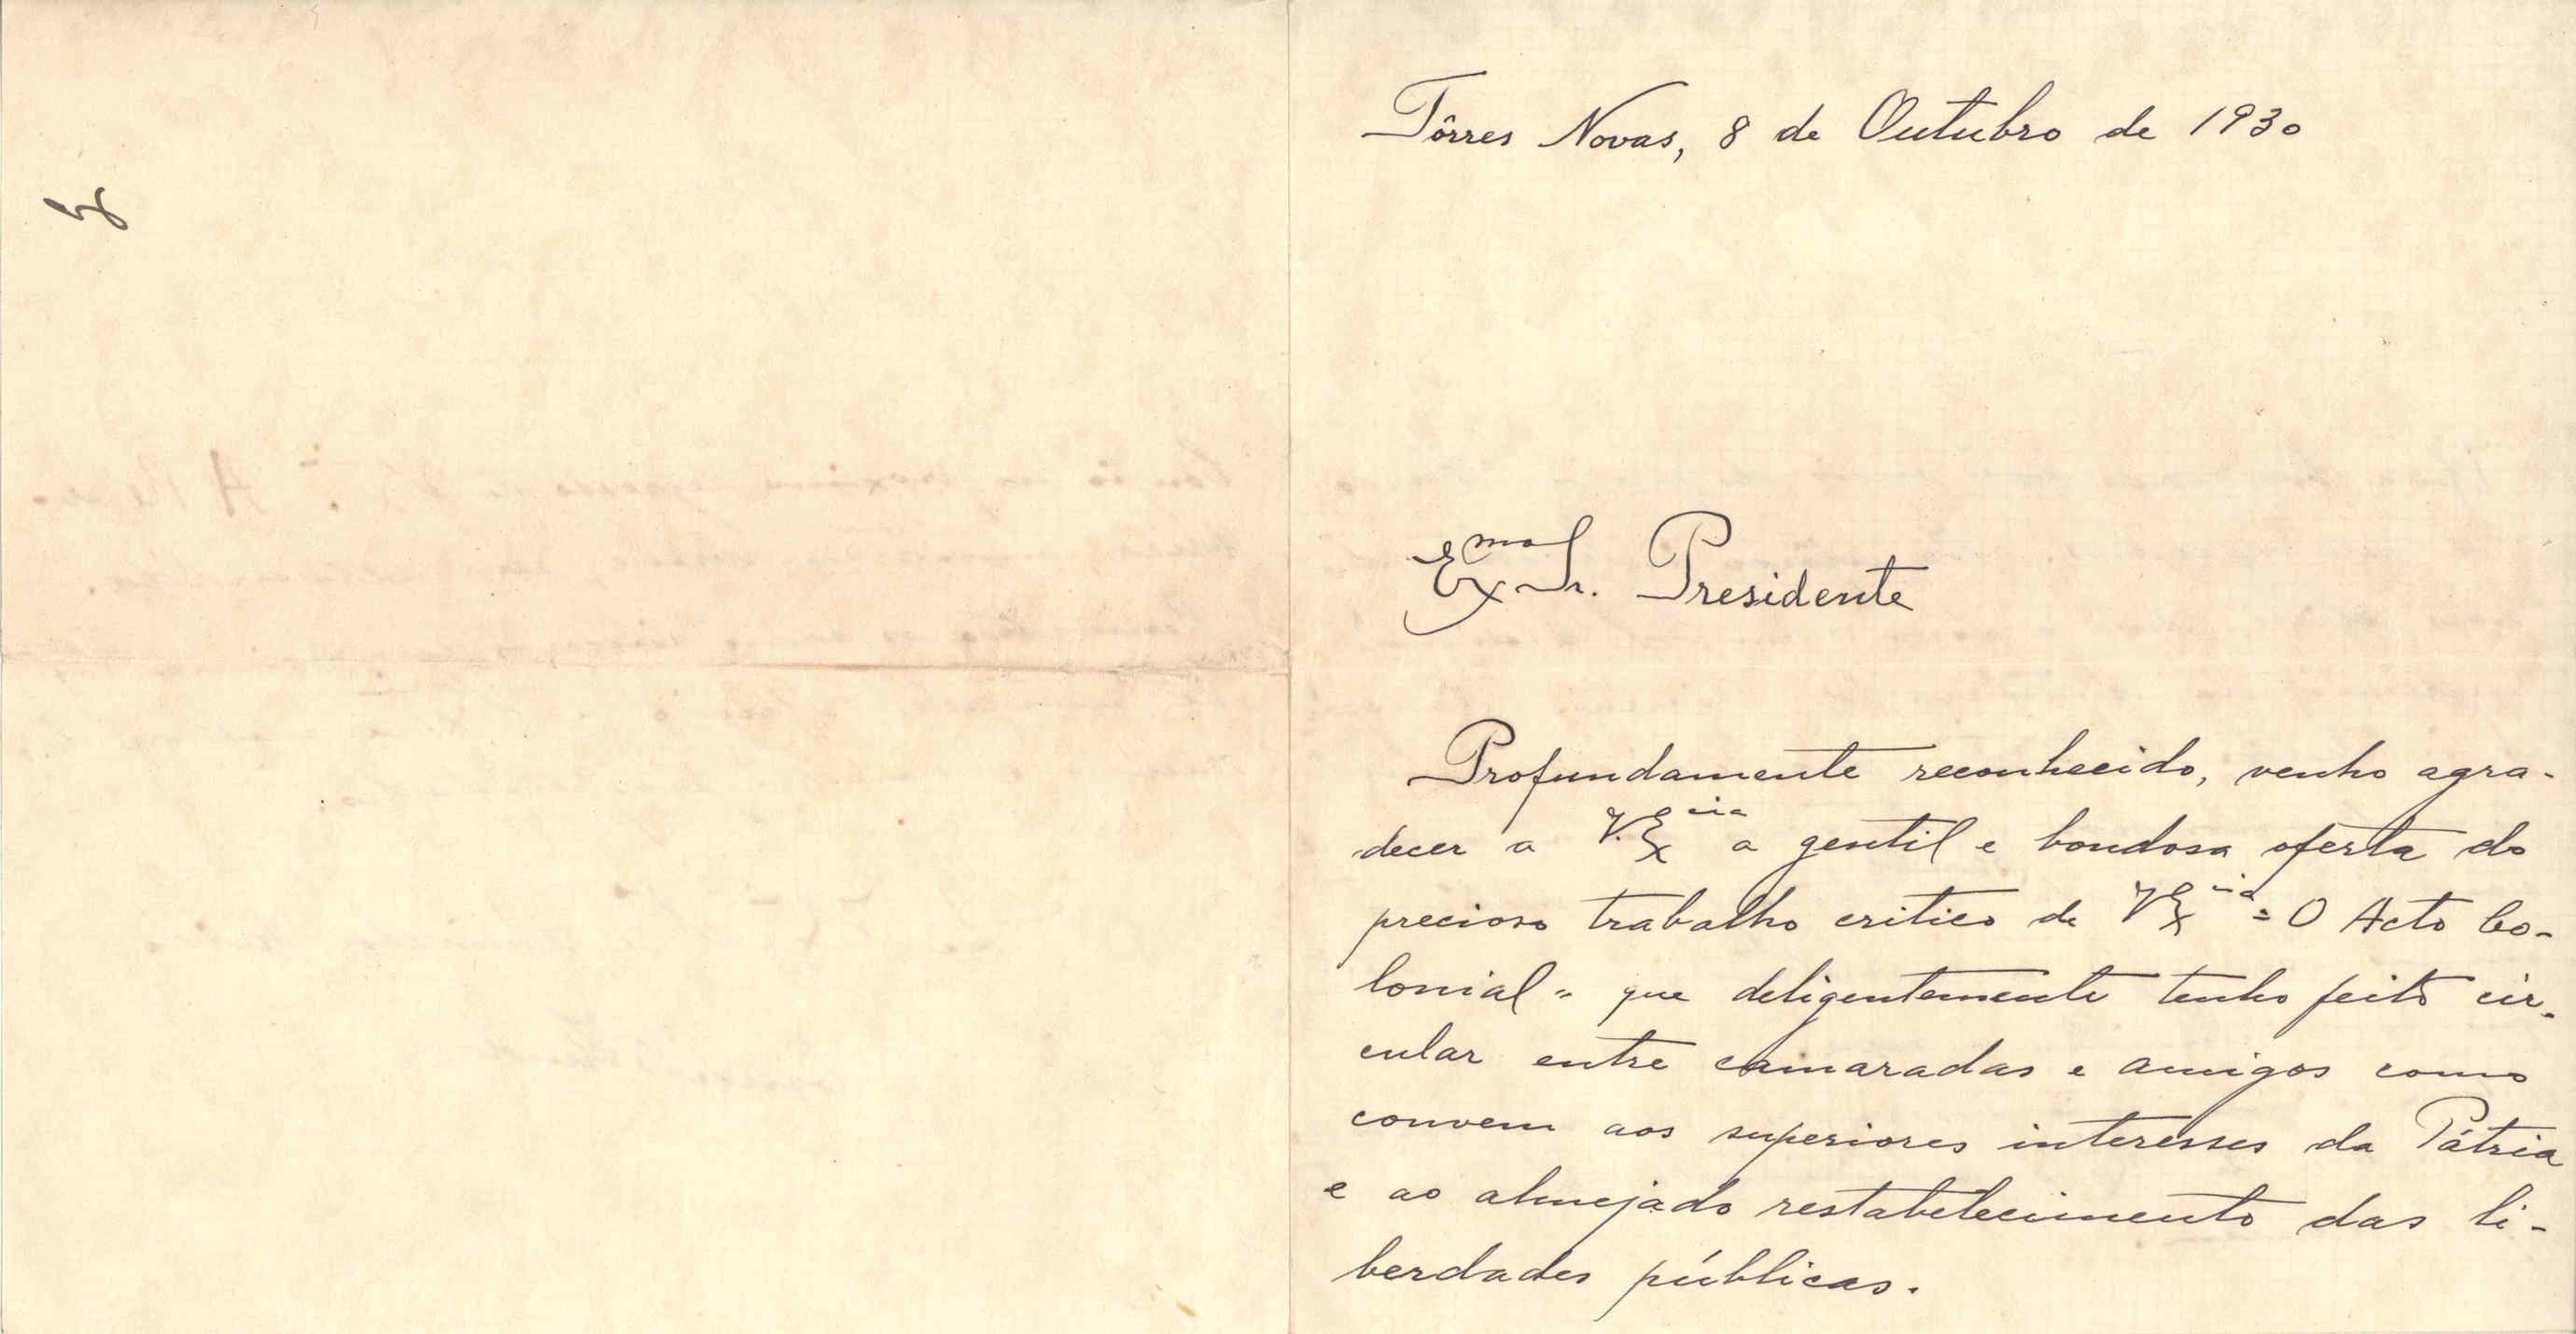 Tôrres Novas, 8 de Outubro de 1930
Exmo Sr. Presidente
Profundamente reconhecido, venho agra-
decer a V. Excia a gentil e bondosa oferta do
precioso trabalho critico de V Excia = O Acto Co-
lonial " que deligentemente tenho feito cir-
cular entre camaradas e amigos como
convem aos superiores interesses da Pátria
e ao almejado restabelecimento das li-
berdades públicas.